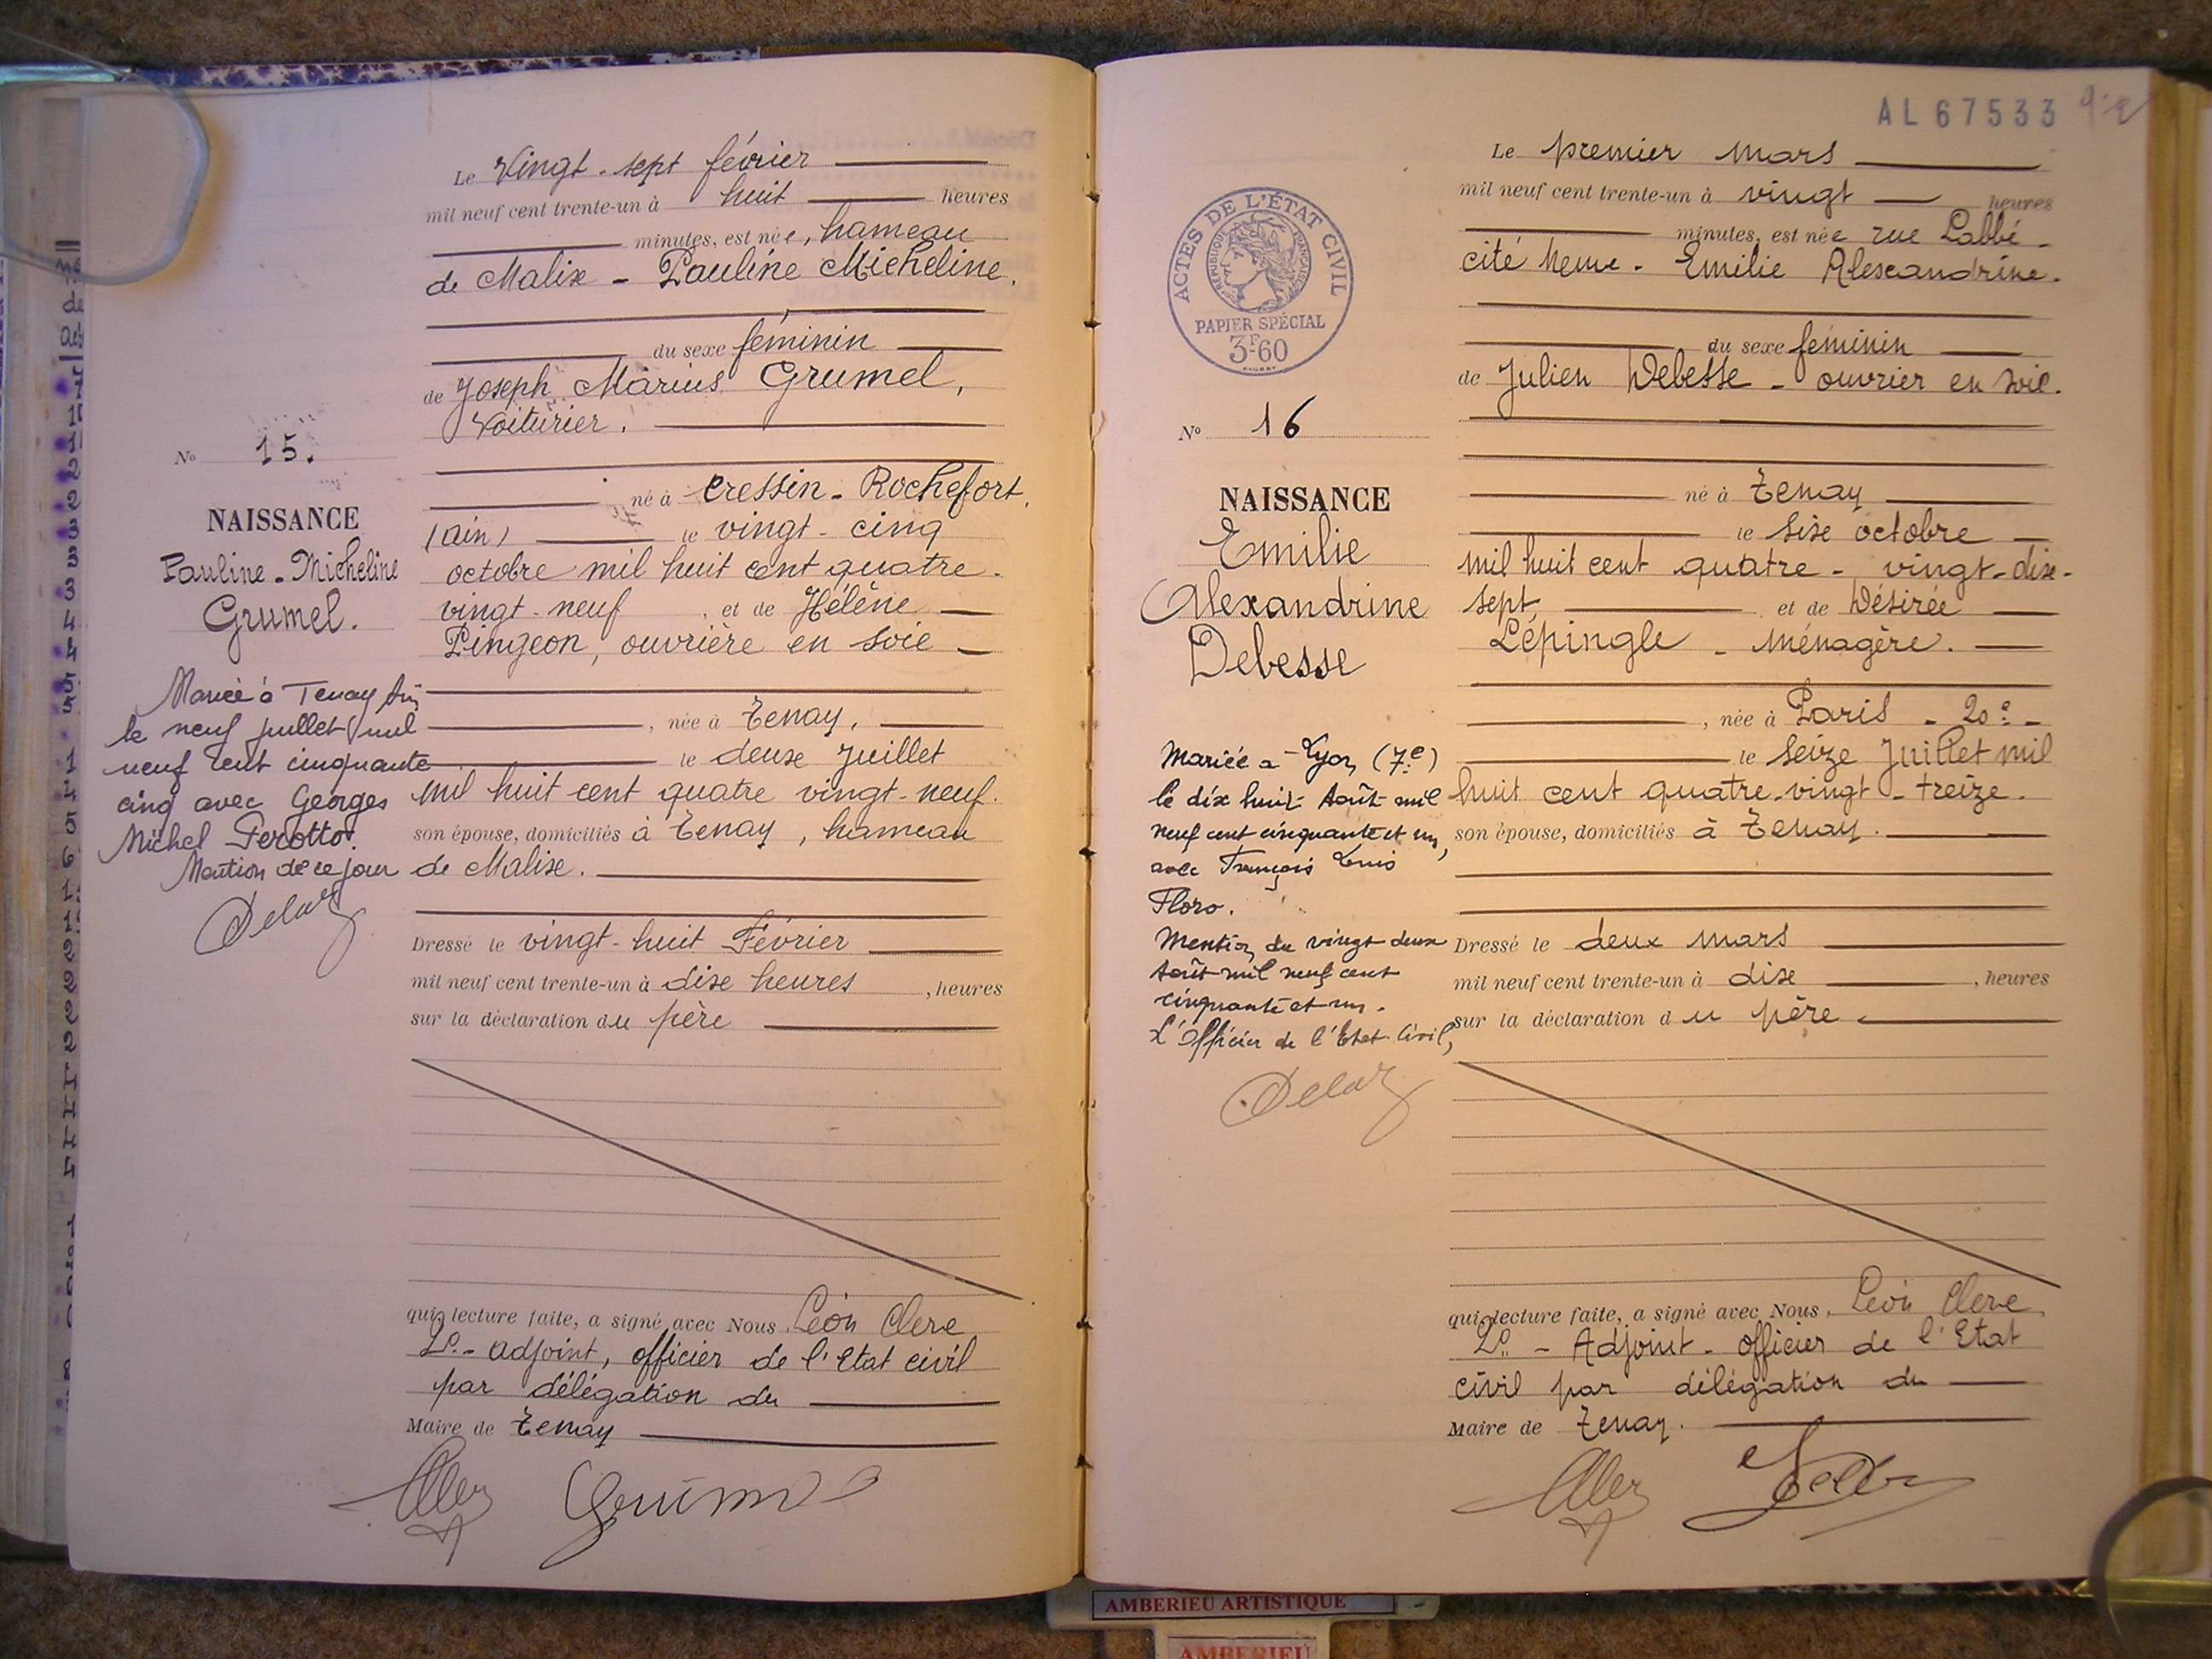 Le Vingt-sept février
mil neuf cent trente-un à huit heures
minutes, est née, hameau
de Malix - Pauline Micheline.
du sexe féminin
de Joseph Marius Grumel,
Voiturier.
né à Cressin-Rochefort,
(Ain) le vingt-cinq
octobre mil huit cent quatre-
vingt-neuf, et de Hélène
Pingeon, ouvrière en soie
, née à Tenay,
le deux Juillet
mil huit cent quatre vingt-neuf.
son épouse, domiciliés à Tenay, hameau
de Malix.
Dressé le vingt-huit Février
mil neuf cent trente-un à dix heures, heures
sur la déclaration du père
qui, lecture faite, a signé avec Nous, Léon Clerc
adjoint, officier de l'Etat civil
par délégation du
Maire de Tenay
No 15.
NAISSANCE
Pauline-Micheline
Grumel.
Mariée à Tenay Ain
le neuf juillet mil
neuf cent cinquante
cinq avec Georges
Michel Perotto.
Mention de ce jour
AL 67533
ACTES DE L'ÉTAT CIVIL
RÉPUBLIQUE FRANÇAISE
PAPIER SPÉCIAL
3F60
No 16
NAISSANCE
Emilie
Alexandrine
Debesse
Mariée à Lyon (7e)
le dix huit Août mil
neuf cent cinquante et un,
avec François Louis
Floro.
Mention du vingt deux
Août mil neuf cent
cinquante et un.
L'Officier de l'Etat Civil,
Le premier mars
mil neuf cent trente-un à vingt heures
minutes, est née rue Labbé-
cité - Emilie Alexandrine.
du sexe féminin
de Julien Debesse - ouvrier en soie.
né à Tenay
le six octobre
mil huit cent quatre-vingt-dix-
sept, et de Désirée
Lépingle - ménagère.
, née à Paris - 20e -
le seize Juillet mil
huit cent quatre-vingt-treize.
son épouse, domiciliés à Tenay.
Dressé le deux mars
mil neuf cent trente-un à dix, heures
sur la déclaration du père
qui, lecture faite, a signé avec Nous, Léon Clerc
Adjoint - officier de l'Etat
civil par délégation du
Maire de Tenay.
AMBERIEU ARTISTIQUE
AMBERIEU